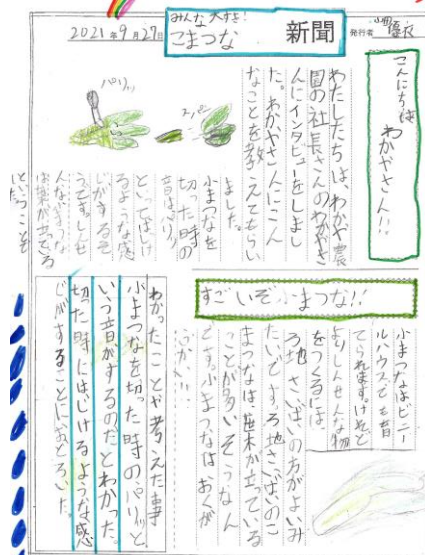 2021年9月27日
みんな大すき!
こまつな
新聞
発行者
こんにちは
わかやさん!!
わたしたちは、わかや農
園の社長さんのわかやさ
んにインタビューをしまし
た。わかやさんにこん
なことを教えてもらい
ました。
小まつなを
切った時の
音はパリッ
といってはじけ
るような感
じがするそ
うです。しんせ
んな
は葉が立っている
ということで
した。
パリッ
スパー
すごいぞ小まつな!!
小まつなはビニー
ルハウスでも育
てられます。けれど
よりしんせんな物
をつくるには
ろ地さいばいの方がよいみ
たいです。ろ地さいばいのこ
まつなは、葉が立っている
ことが多いそうなん
です。小まつなはおくが
ふかい!!
わかったことや考えた事
小まつなを切った時のパリッと
いう音がするのだとわかった。
切った時にはじけるような感
じがすることにおどろいた。